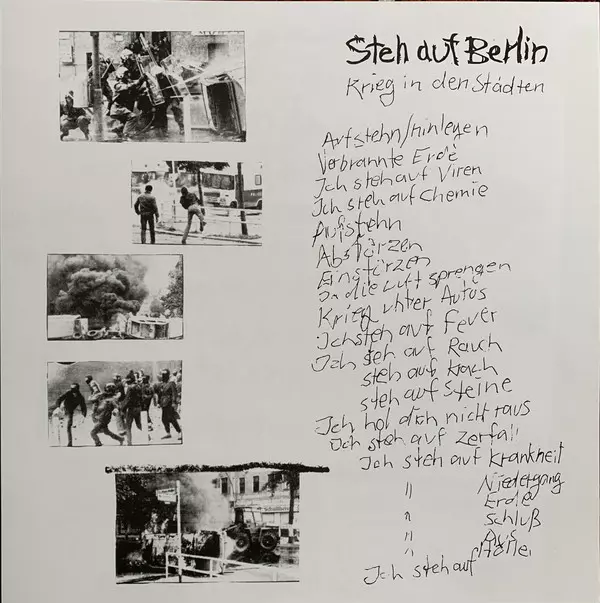 Steh auf Berlin
Krieg in den Städten
Aufstehn/Hinlegen
Verbrannte Erde
Ich steh auf Viren
Ich steh auf Chemie
Aufstehn
Abstürzen
Einstürzen
In die Luft sprengen
Krieg unter Autos
Ich steh auf Feuer
Ich steh auf Rauch
steh auf Krach
steh auf Steine
Ich hol dich nicht raus
Ich steh auf Zerfall
Ich steh auf Krankheit
" Niedergang
Erde
" Schluß
" Aus
" 
Ich steh auf